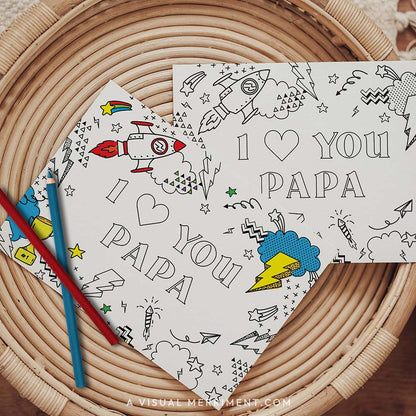 I ♡ YOU
PAPA
I ♡ YOU
PAPA
A VISUAL MERRIMENT.COM